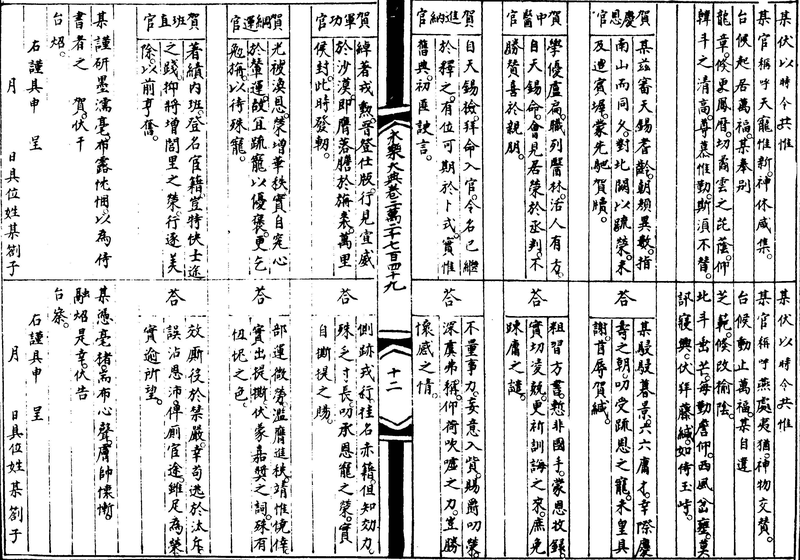 某伏以時令共惟
某官稱呼天寵惟新。神休咸集。
台候起居萬福。某奉別
龍章。倏更鳳曆。切裔雲之芘蔭。仰
韓斗之清高。尊慕惟勤。斯須不替。
賀慶恩官
某茲審天錫耆齡。朝頒異數。指
南山而同久。對北闕以疏榮。未
及造賓墀。蒙先馳賀牘。
賀中醫官
學優盧扁。職列醫林。活人有方。
自天錫命。會見居榮於丞判。不
勝贊喜於親朋。
賀進納官
自天錫檢。拜命入官。令名已繼
於釋之。有位可期於卜式。實惟
舊典。初匪諛言。
永樂大典卷二萬二千七百四十九
十二
賀軍功官
綽著戎勲。晉登仕版。行見宣威
於沙漠。即膺落膽於旃裘。萬里
侯封。此時發軔。
賀綱運官
光被渙恩。榮增華秩。實自完心
於輦運。故宜疏寵以優褒。更乞
勉旃。以待殊寵。
賀班直官
著績內班。登名宦籍。豈特快士途
之踐。抑將增閭里之榮。行逐美
除。以前亨舊。
某謹研墨濡毫。布露忱悃。以為侍
書者之 賀。伏干
台炤。
右謹具申 呈
月 日具位姓某劄子
某伏以時令共惟
某官稱呼燕處夷猶。神物交贊。
台候動止萬福。某自違
芝範。倏改榆陰。
北斗出芒。每勤詹仰。西風
訊寢興。伏拜藤緘。如倚玉
荅
某駸駸暮景。六六庸才。幸際慶
壽之朝。叨受疏恩之寵。未皇具
謝。首辱賀緘。
荅
粗習方書。慙非國手。蒙恩收錄。
實切凌兢。更祈訓誨之來。庶免
踈庸之譴。
荅
不量事力。妄意入貲。賜爵叨榮。
深虞弗稱。仰荷吹噓之力。豈勝
懷感之情。
荅
側跡戎行。挂名赤籍。但知効力。
殊乏寸長。叨承恩寵之榮。實
自撕提之賜。
荅
部運微勞。濫膺進秩。靖惟僥倖。
實出提撕。伏蒙嘉奬之詞。殊有
忸怩之色。
荅
效厮役於禁嚴。幸苟逃於汰斥。
誤沾恩沛。俾厠宦途。雖足為榮。
實逾所望。
某憑毫楮。耑布心聲。膚帥悚慚。
融炤是幸。伏告
台察。
右謹具申 呈
月 日具位姓某劄子